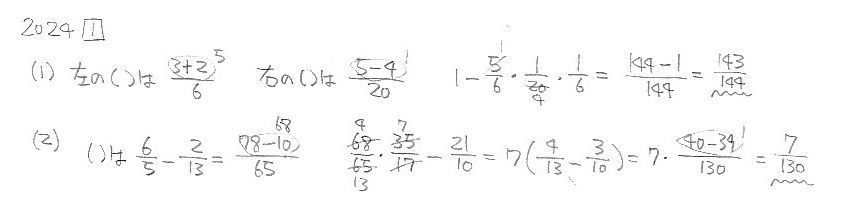 2024 1
(1) 左の()は (3+2)/6 5 右の()は (5-4)/20 1 1 - 5/6 · 1/20 · 1/6 = (144-1)/144 = 143/144 1 4
(2) ()は 6/5 - 2/13 = (78-10)/65 68 68/65 · 35/17 - 21/10 = 7(4/13 - 3/10) = 7 · (40-39)/130 = 7/130 4 7 13 1